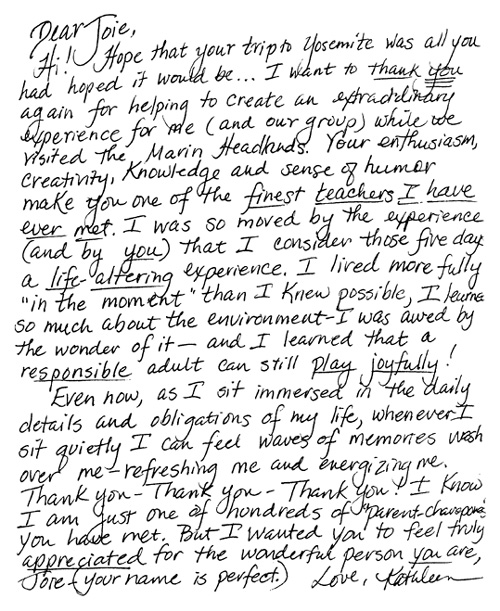 Dear Joie,
Hi! Hope that your trip to Yosemite was all you
had hoped it would be... I want to thank you
again for helping to create an extraordinary
experience for me (and our group) while we
visited the Marin Headlands. Your enthusiasm,
creativity, Knowledge and sense of humor
make you one of the finest teachers I have
ever met. I was so moved by the experience
(and by you) that I consider those five day
a life-altering experience. I lived more fully
"in the moment" than I Knew possible, I learne
so much about the environment-I was awed by
the wonder of it- and I learned that a
responsible adult can still play joyfully!
Even now, as I sit immersed in the daily
details and obligations of my life, whenever I
sit quietly I can feel waves of memories wash
over me-refreshing me and energizing me.
Thank you - Thank you - Thank you! I Know
I am just one of hundreds of "parent-chaperones"
you have met. But I wanted you to feel truly
appreciated for the wonderful person you are,
Joie (your name is perfect.) Love, Kathleen